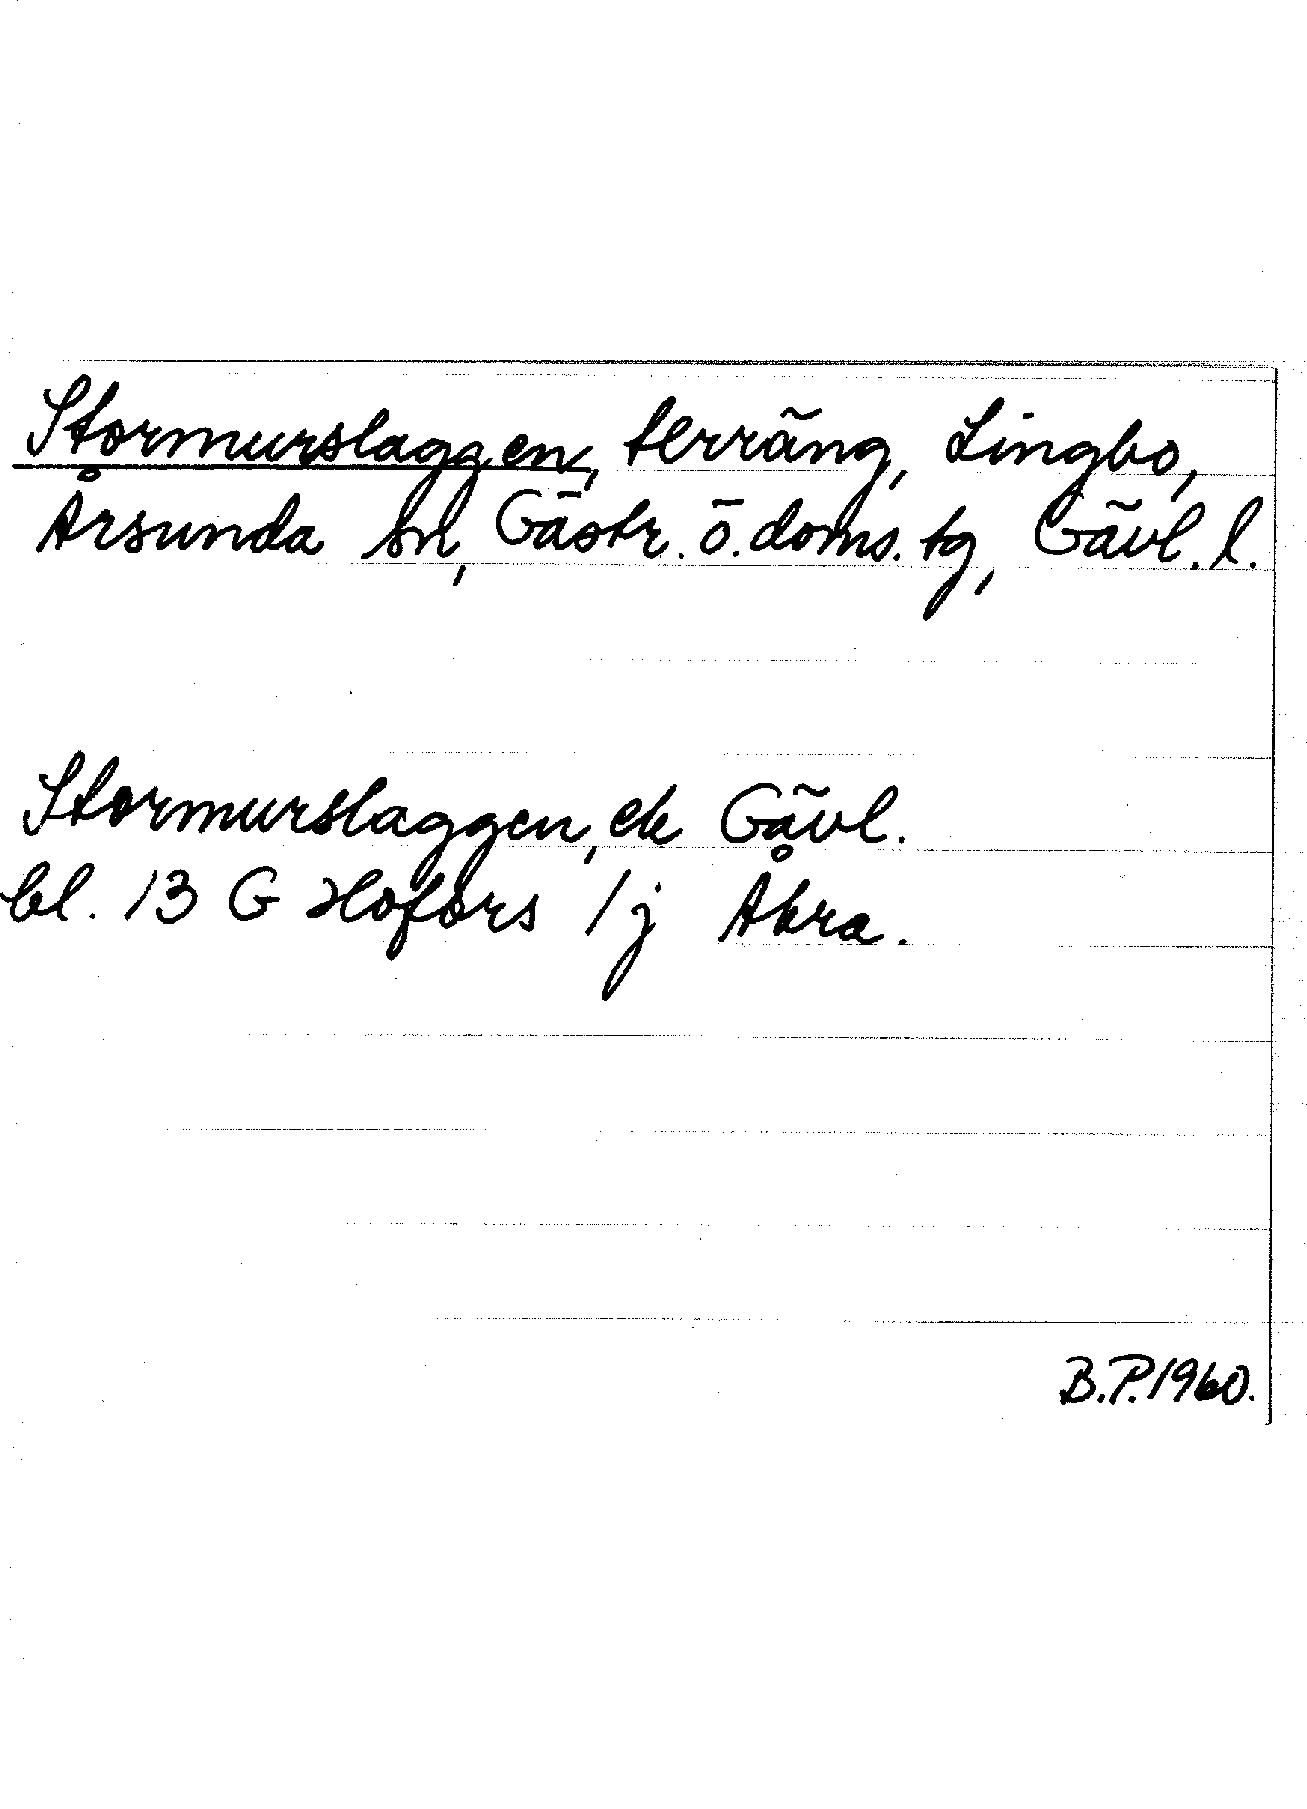 Stormurslaggen, terräng, Lingbo,
Årsunda sn, Gästr. ö. doms. tg, Gävl. l.
Stormurslaggen, ek Gävl.
bl. 13 G Hofors 1j Åkra.
B.P. 1960.